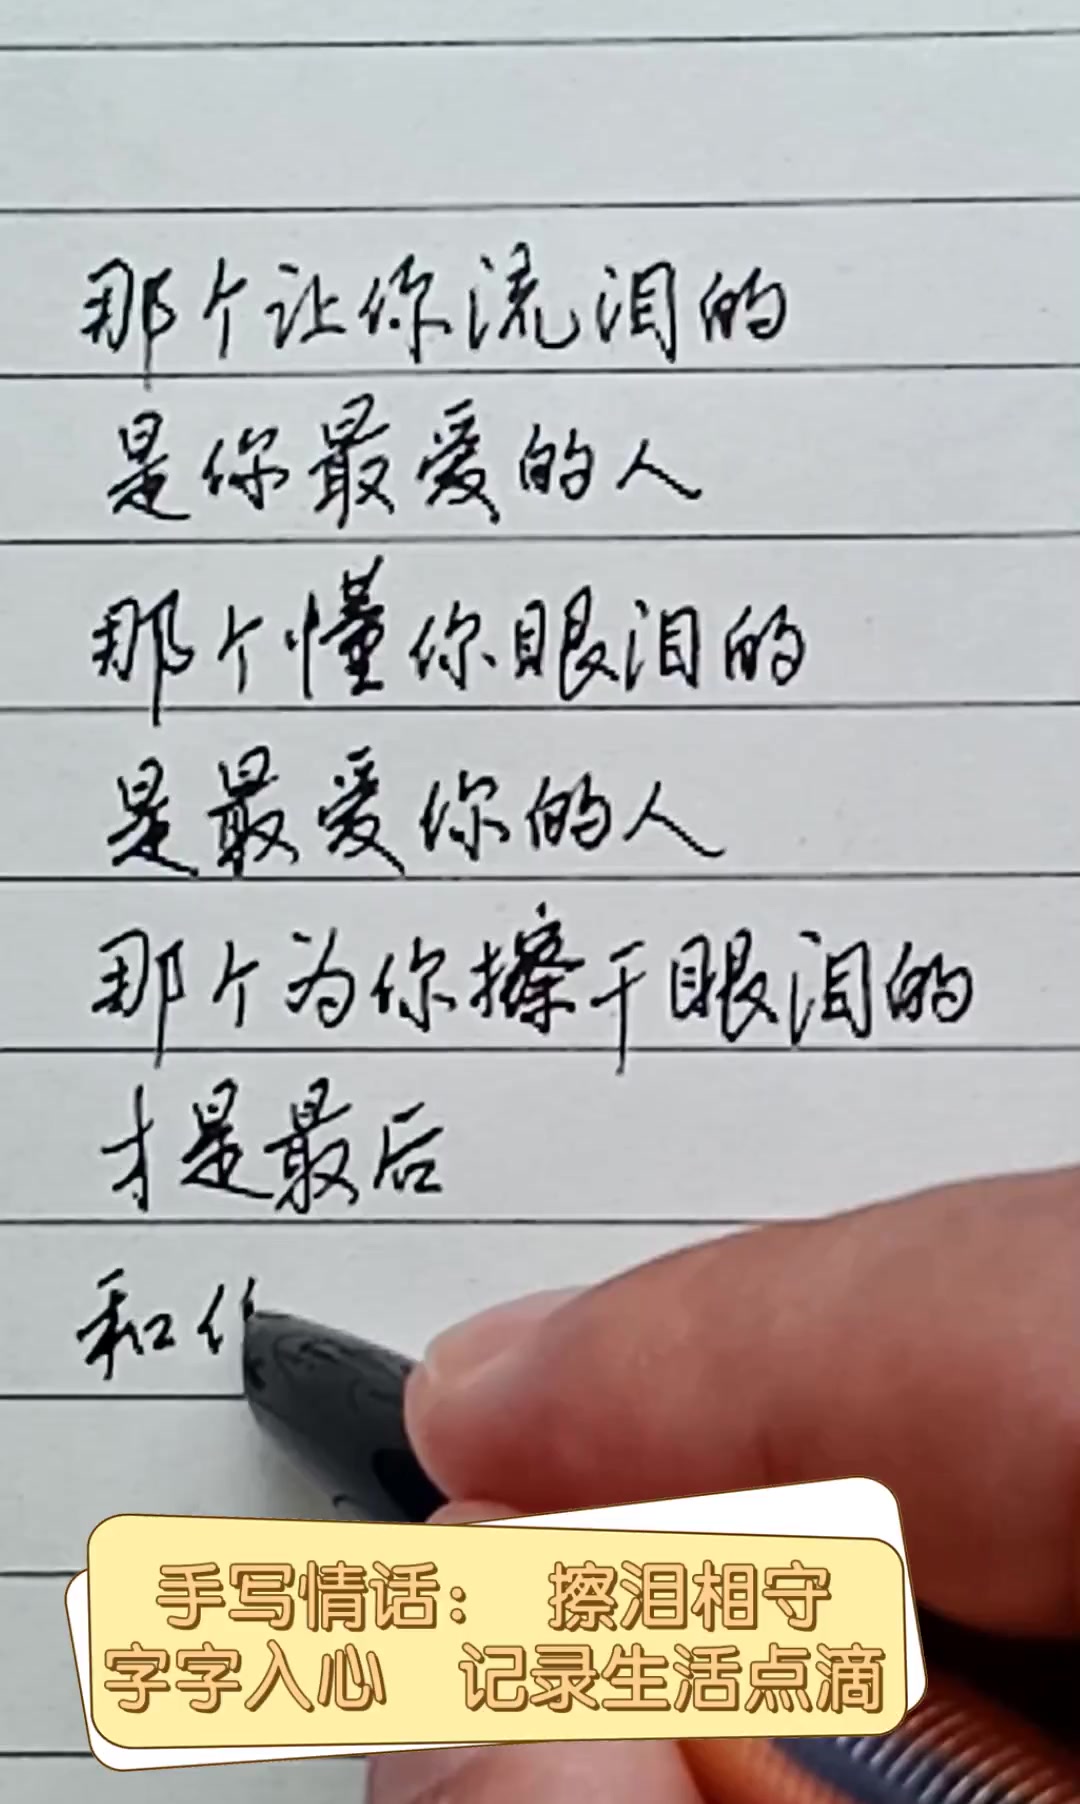 那个让你流泪的
是你最爱的人
那个懂你眼泪的
是最爱你的人
那个为你擦干眼泪的
才是最后
和
手写情话： 擦泪相守
字字入心 记录生活点滴